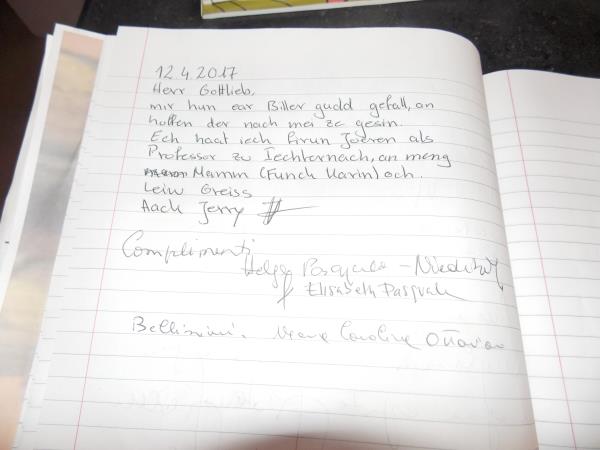 12.4.2017
Herr Gottlieb,
mir hun ear Biller gudd gefall, an
hoffen der nach mei ze gesin.
Ech haat iech firun Joeren als
Professer zu Iechternach, an meng
Mamm (Funck Karin) och.
Leiw Greiss
Aach Jerry
Complimenti
Helga Pasquale -
Elisabeth Pasquale
Bellissimi. Caroline